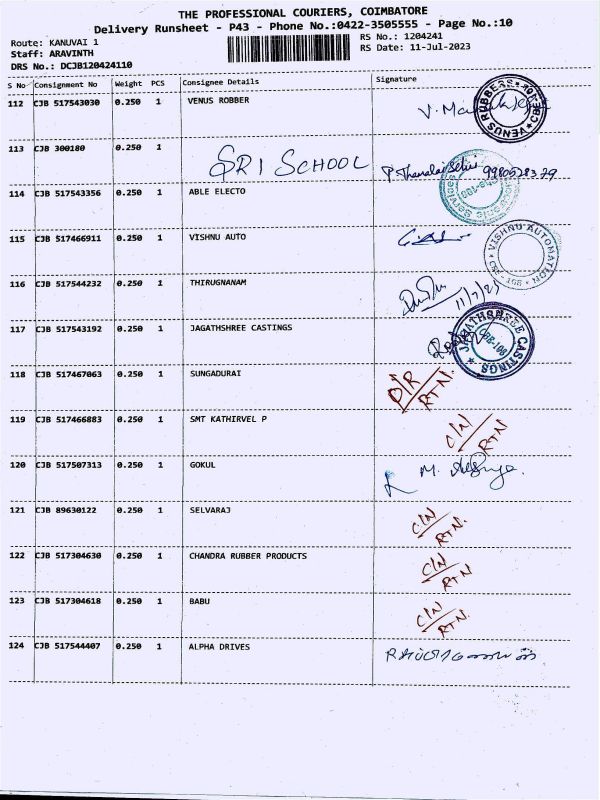 THE PROFESSIONAL COURIERS, COIMBATORE
Delivery Runsheet - P43 - Phone No.:0422-3505555 - Page No.:10
Route: KANUVAI 1
RS No.: 1204241
Staff: ARAVINTH
RS Date: 11-Jul-2023
DRS No.: DCJB120424110
S No Consignment No Weight PCS Consignee Details Signature
112 CJB 517543030 0.250 1 VENUS ROBBER
VENUS RUBBERS CBE
113 CJB 300180 0.250 1 SRI SCHOOL 9980528379
114 CJB 517543356 0.250 1 ABLE ELECTO
115 CJB 517466911 0.250 1 VISHNU AUTO
VISHNU AUTOMATION
116 CJB 517544232 0.250 1 THIRUGNANAM
117 CJB 517543192 0.250 1 JAGATHSHREE CASTINGS
JAGATHSHREE CASTINGS CBE-108
118 CJB 517467063 0.250 1 SUNGADURAI D/R RTN.
119 CJB 517466883 0.250 1 SMT KATHIRVEL P C/N RTN
120 CJB 517507313 0.250 1 GOKUL
121 CJB 89630122 0.250 1 SELVARAJ C/N RTN.
122 CJB 517304630 0.250 1 CHANDRA RUBBER PRODUCTS C/N RTN
123 CJB 517304618 0.250 1 BABU C/N RTN.
124 CJB 517544407 0.250 1 ALPHA DRIVES